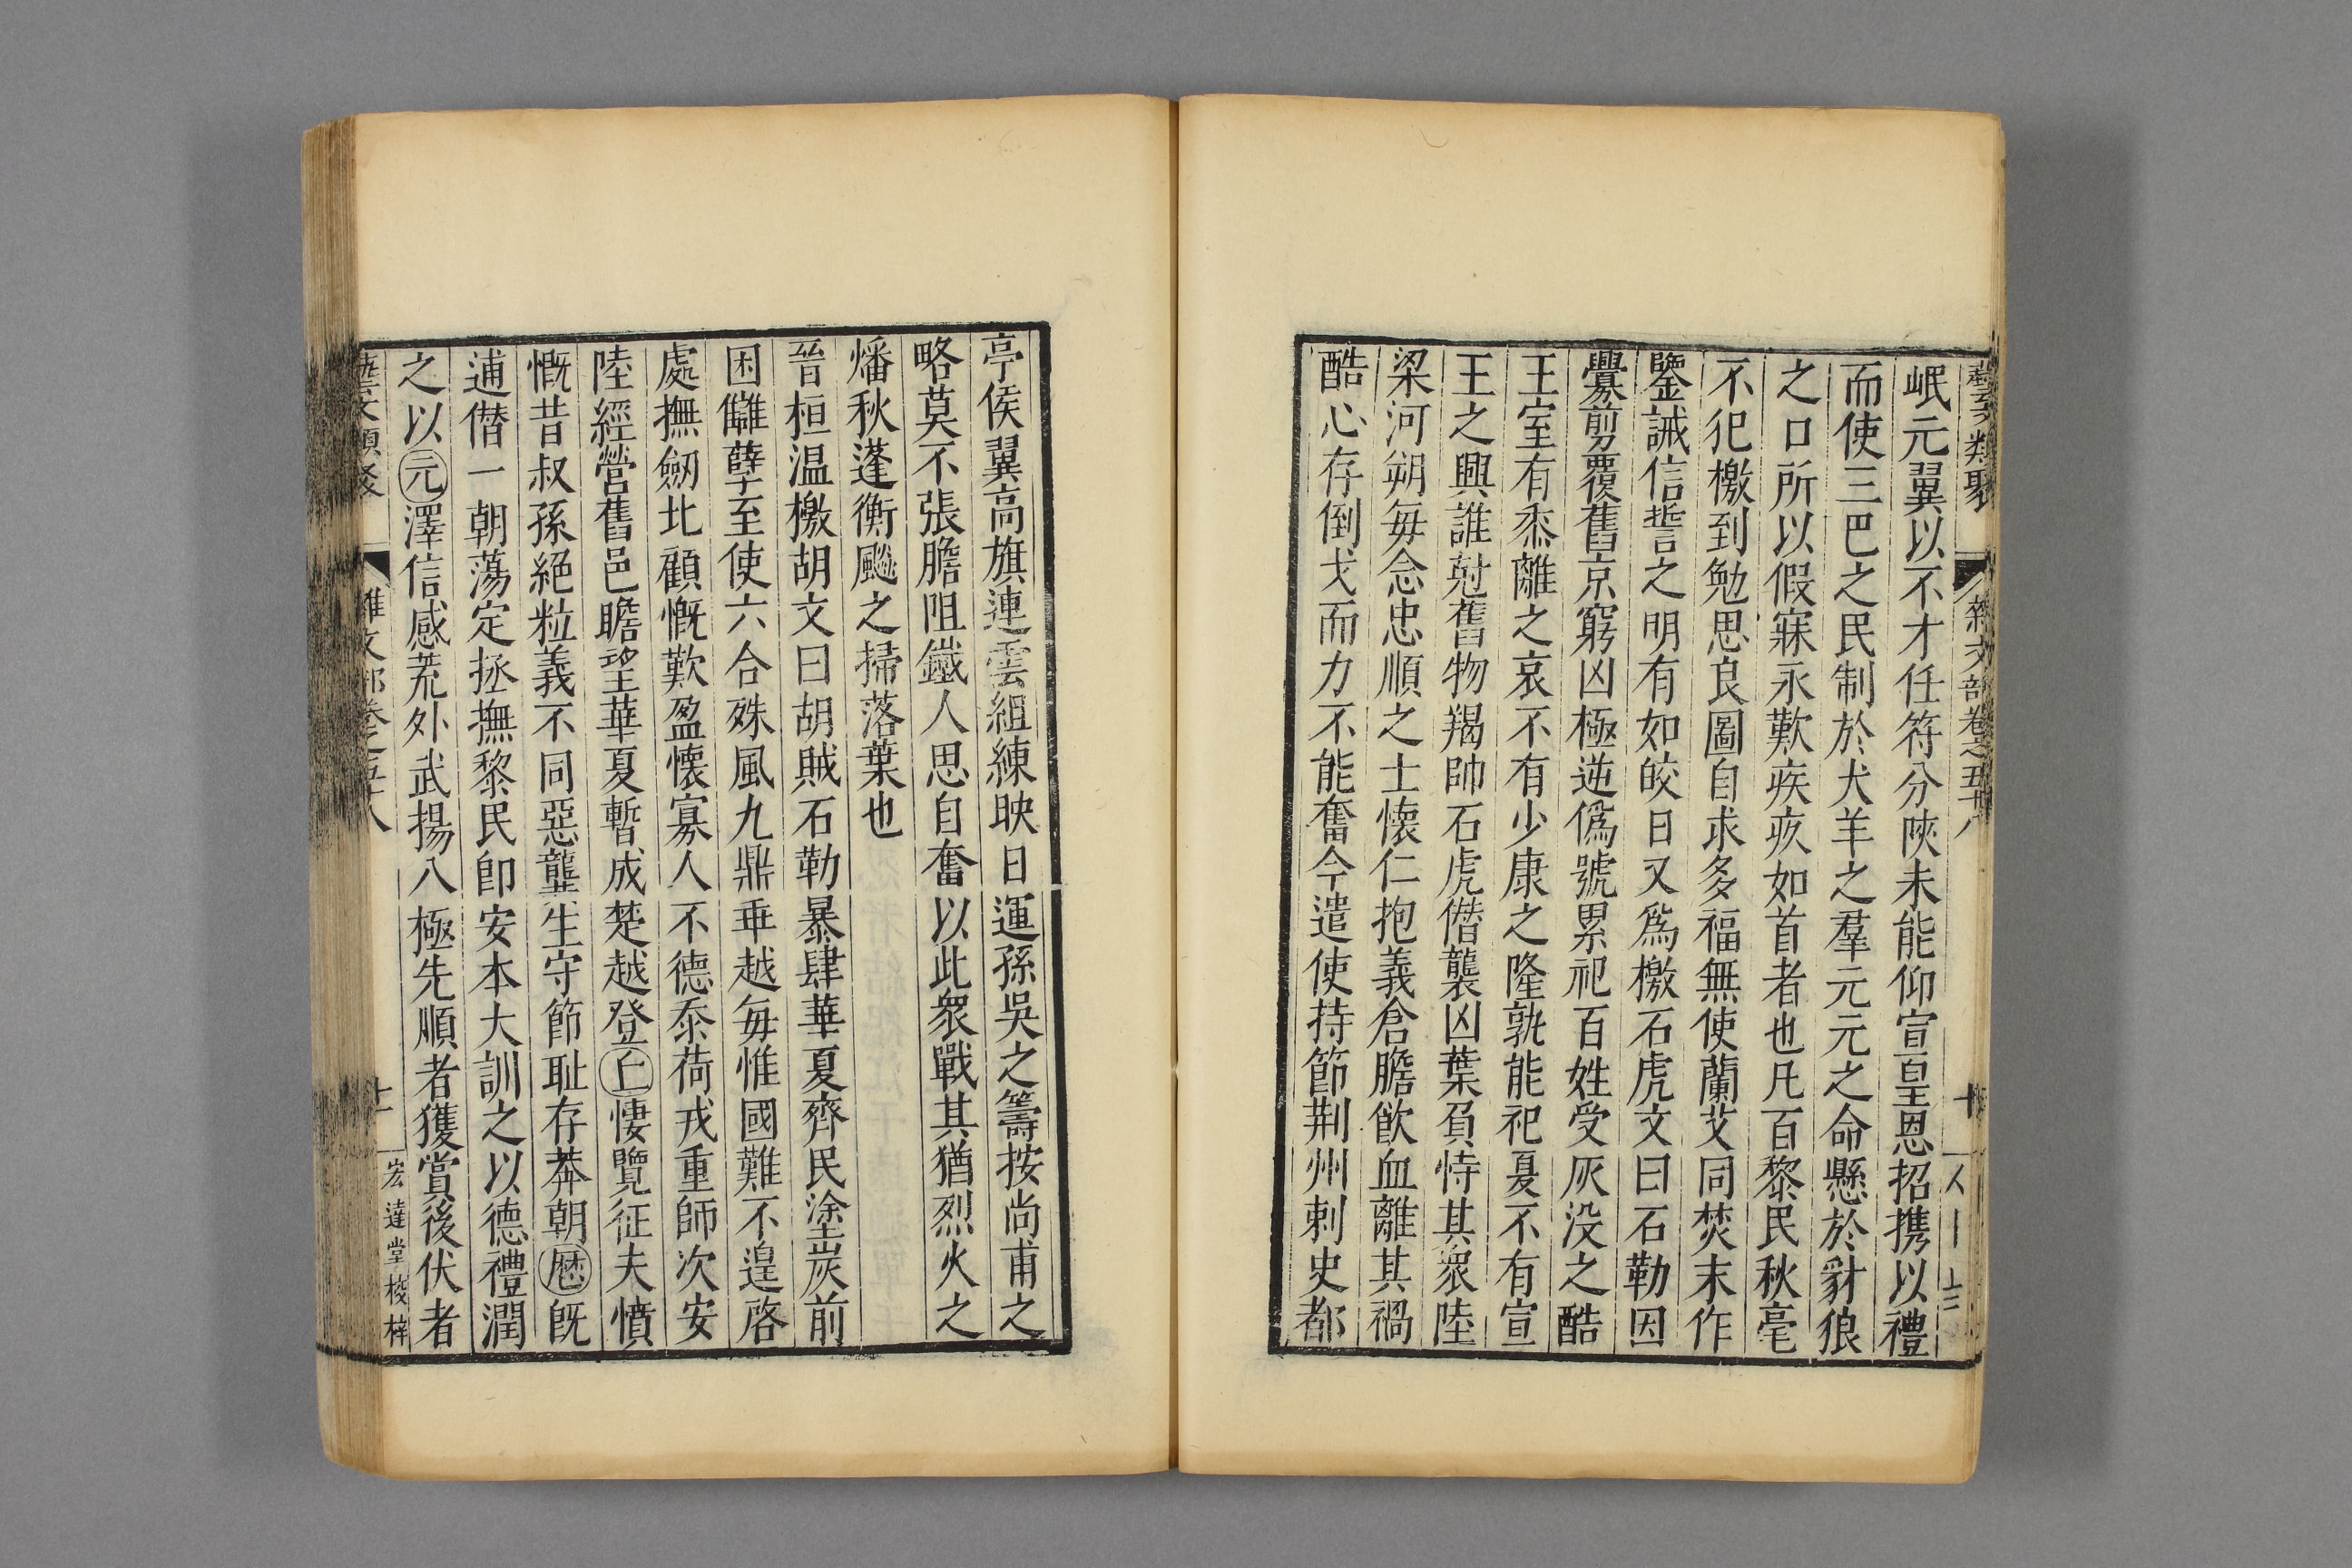 藝文類聚 雜文部卷之五十八 十
岷元翼以不才任符分陝未能仰宣皇恩招携以禮
而使三巴之民制於犬羊之羣元元之命懸於豺狼
之口所以假寐永歎疾疚如首者也凡百黎民秋毫
不犯檄到勉思良圖自求多福無使蘭艾同焚末作
鑒誡信誓之明有如皎日又爲檄石虎文曰石勒因
釁剪覆舊京窮凶極逆僞號累祀百姓受灰没之酷
王室有黍離之哀不有少康之隆孰能祀夏不有宣
王之興誰尅舊物羯帥石虎僭襲凶葉負恃其衆陸
梁河朔每念忠順之士懷仁抱義倉膽飲血離其禍
酷心存倒戈而力不能奮今遣使持節荆州刺史都
亭侯翼高旗連雲組練映日運孫吳之籌按尚甫之
略莫不張膽阻鐵人思自奮以此衆戰其猶烈火之
燔秋蓬衡飈之掃落葉也
晉桓温檄胡文曰胡賊石勒暴肆華夏齊民塗炭前
困讎孽至使六合殊風九鼎乖越每惟國難不遑啓
處撫劒北顧慨歎盈懷寡人不德忝荷戎重師次安
陸經營舊邑瞻望華夏暫成楚越登丘悽覽征夫憤
慨昔叔孫絶粒義不同惡龔生守節耻存莽朝歷旣
逋僭一朝蕩定拯撫黎民卽安本大訓之以德禮潤
之以元澤信感荒外武揚八極先順者獲賞後伏者
藝文類聚 雜文部卷之五十八 十一 宏達堂校梓